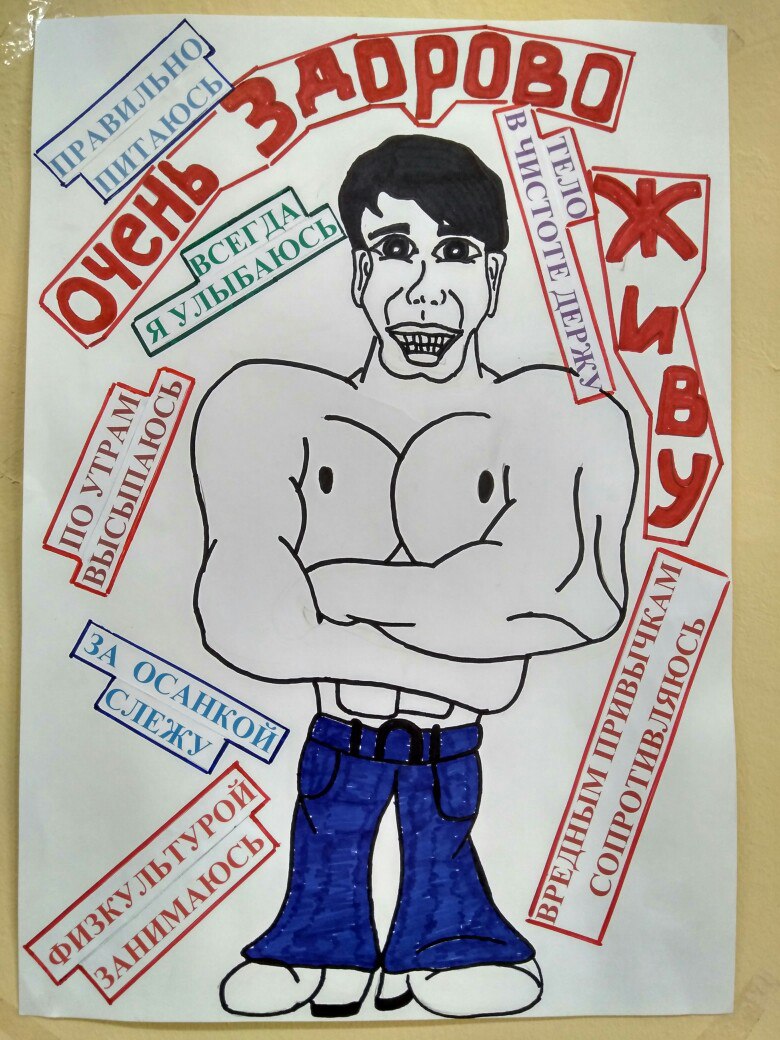 ОЧЕНЬ ЗДОРОВО
ЖИВУ
ПРАВИЛЬНО
ПИТАЮСЬ
ВСЕГДА
Я УЛЫБАЮСЬ
ТЕЛО
В ЧИСТОТЕ ДЕРЖУ
ПО УТРАМ
ВЫСЫПАЮСЬ
ЗА ОСАНКОЙ
СЛЕЖУ
ФИЗКУЛЬТУРОЙ
ЗАНИМАЮСЬ
ВРЕДНЫМ ПРИВЫЧКАМ
СОПРОТИВЛЯЮСЬ